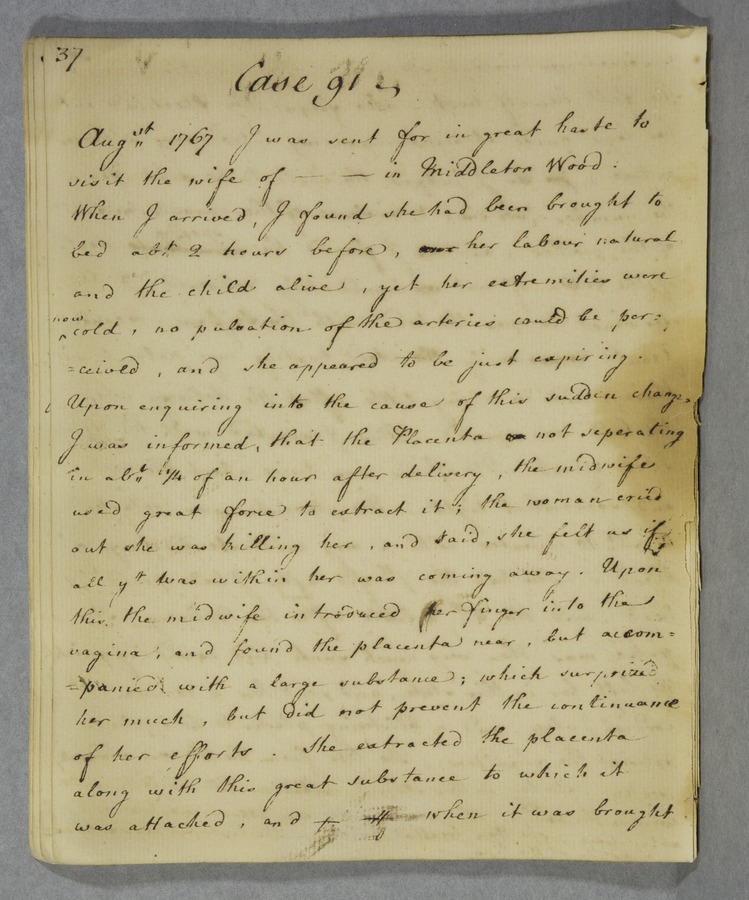 37
Case 91
Augst 1767 I was sent for in great haste to
visit the wife of — — in Middleton Wood.
When I arrived, I found she had been brought to
bed abt 2 hours before, her labour natural
and the child alive, yet her extremities were
now
cold, no pulsation of the arteries could be per=
=ceived, and she appeared to be just expiring.
Upon enquiring into the cause of this sudden change,
I was informed, that the Placenta not seperating
in abt 1/4 of an hour after delivery, the midwife
used great force to extract it; the woman cried
out she was killing her, and said, she felt as if
all yt was within her was coming away. Upon
this the midwife introduced her finger into the
vagina, and found the placenta near, but accom=
=panied with a large substance; which surprized
her much, but did not prevent the continuance
of her efforts. She extracted the placenta
along with this great substance to which it
was attached, and when it was brought